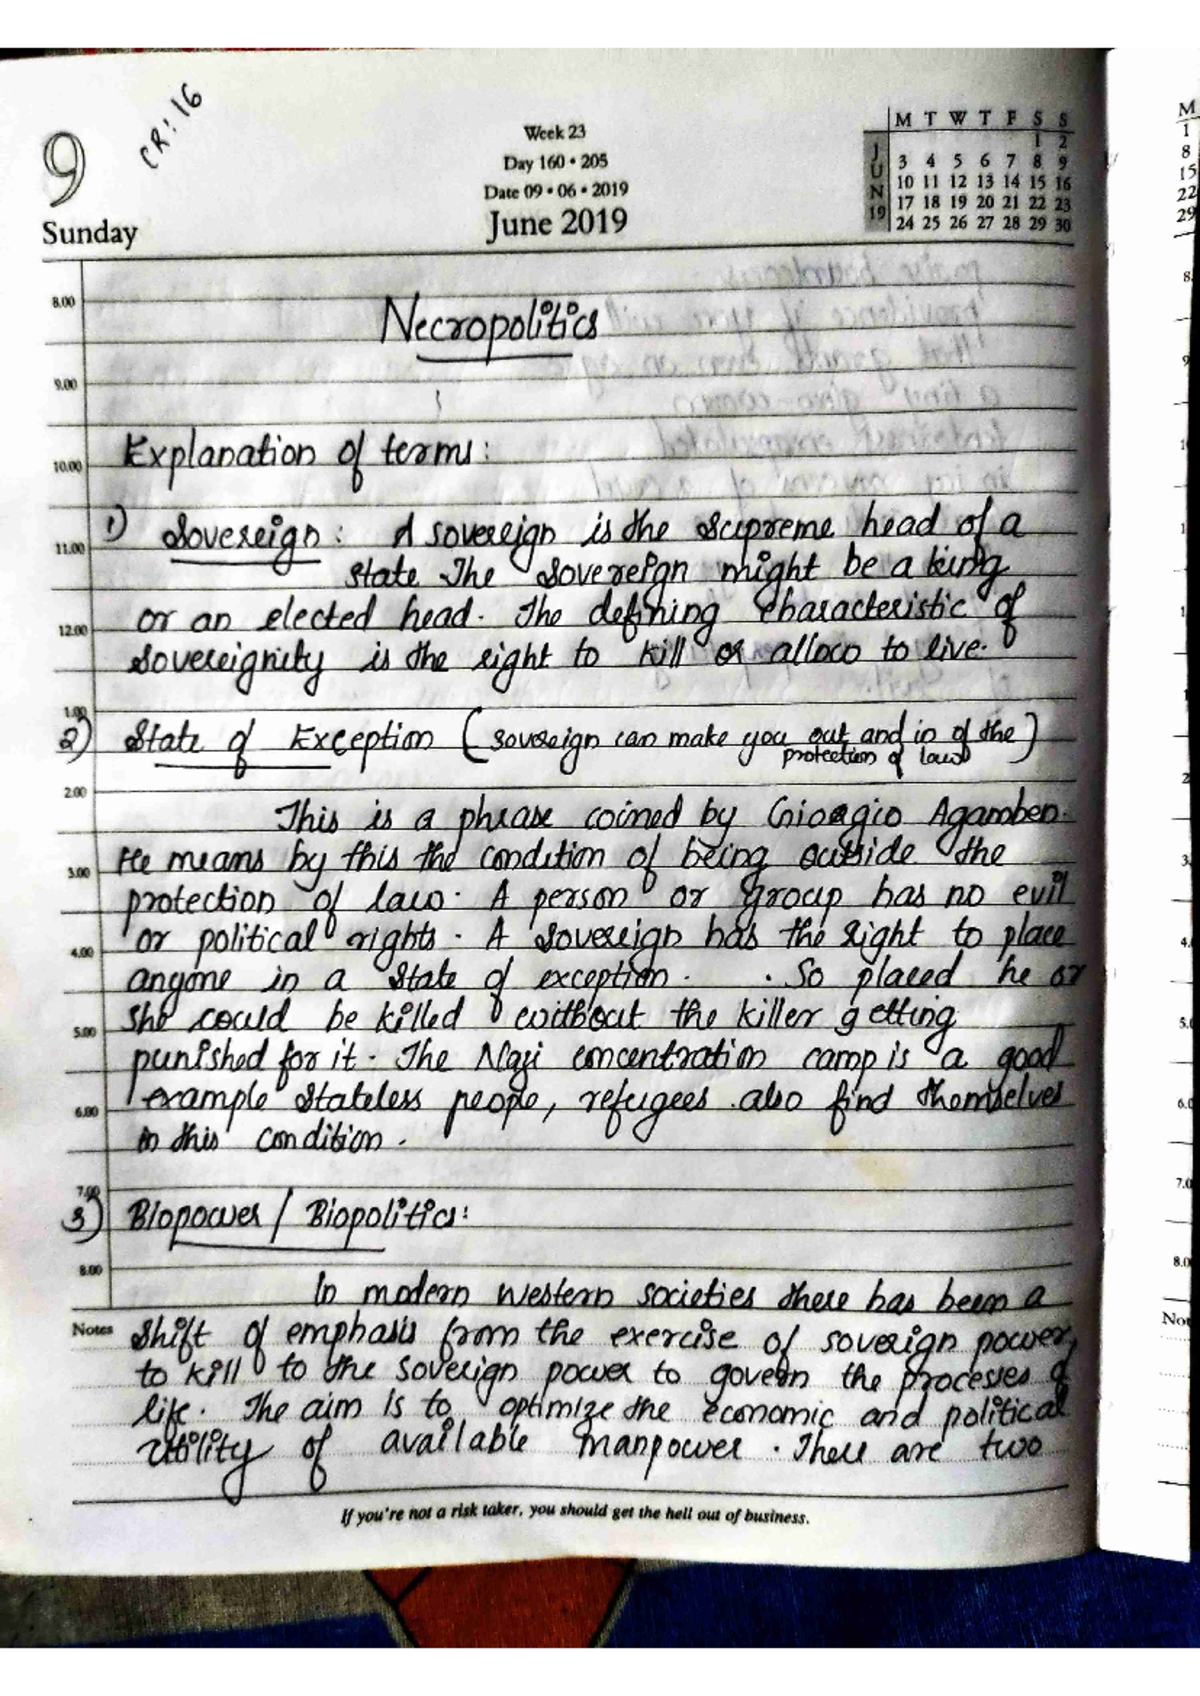 9
CR: 16
Sunday
Week 23
Day 160 • 205
Date 09 • 06 • 2019
June 2019
JUN 19
M T W T F S S
1 2
3 4 5 6 7 8 9
10 11 12 13 14 15 16
17 18 19 20 21 22 23
24 25 26 27 28 29 30
8.00
Necropolitics
9.00
Explanation of terms:
10.00
1) Sovereign: A sovereign is the supreme head of a
11.00
state The sovereign might be a king
or an elected head. The defining characteristic of
12.00
sovereignity is the right to kill or allow to live.
1.00
2) State of Exception (sovereign can make you out and in of the)
protection of law
2.00
This is a phrase coined by Giorgio Agamben.
He means by this the condition of being outside the
3.00
protection of law. A person or group has no evil
or political rights. A sovereign has the right to place
4.00
anyone in a state of exception. . So placed he or
she could be killed without the killer getting
5.00
punished for it. The Nazi concentration camp is a good
example stateless people, refugees also find themselves
6.00
in this condition.
7.00
3) Biopower / Biopolitics:
8.00
In modern western societies there has been a
Notes
shift of emphasis from the exercise of soverign power,
to kill to the soverign power to govern the processes of
life. The aim is to optimize the economic and political
utility of available manpower. There are two
If you're not a risk taker, you should get the hell out of business.
M
1
8
15
22
29